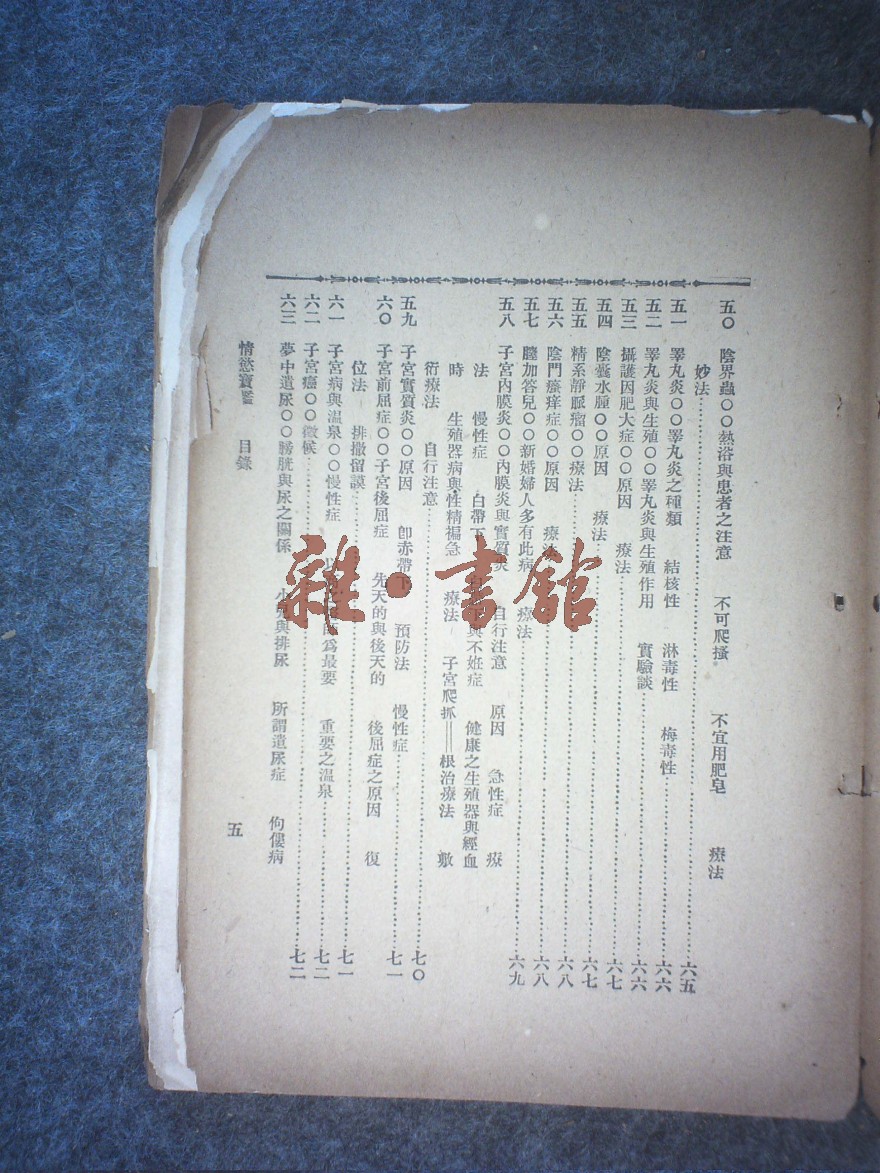 五〇 陰界蟲〇〇熱浴與患者之注意 不可爬搔 不宜用肥皂 療法
妙法……六五
五一 睪丸炎〇〇睪丸炎之種類 結核性 淋毒性 梅毒性……六六
五二 睪丸炎與生殖〇〇睪丸炎與生殖作用 實驗談……六六
五三 攝護因肥大症〇〇原因 療法……六七
五四 陰囊水腫〇〇原因 療法……六七
五五 精系靜脈瘤〇〇療法……六八
五六 陰門癢痒症〇〇原因 療法……六八
五七 膣加答兒〇〇新婚婦人多有此病 療法……六九
五八 子宮內膜炎〇〇內膜炎與實質炎 自行注意 原因 急性症 療
法 慢性症 白帶下 與不姙症 健康之生殖器與經血
時 生殖器病與性精揙急 療法 子宮爬抓——根治療法 敷
衍療法 自行注意……七〇
五九 子宮實質炎〇〇原因 卽赤帶下 預防法 慢性症……七一
六〇 子宮前屈症〇〇子宮後屈症 先天的與後天的 後屈症之原因 復
位法 排撒留謨……七一
六一 子宮病與溫泉〇〇慢性症 爲最要 重要之溫泉……七二
六二 子宮癌〇〇徵候……七二
六三 夢中遺尿〇〇膀胱與尿之關係 與排尿 所謂遺尿症 佝僂病
情慾寶鑑 目錄 五
雜·書館